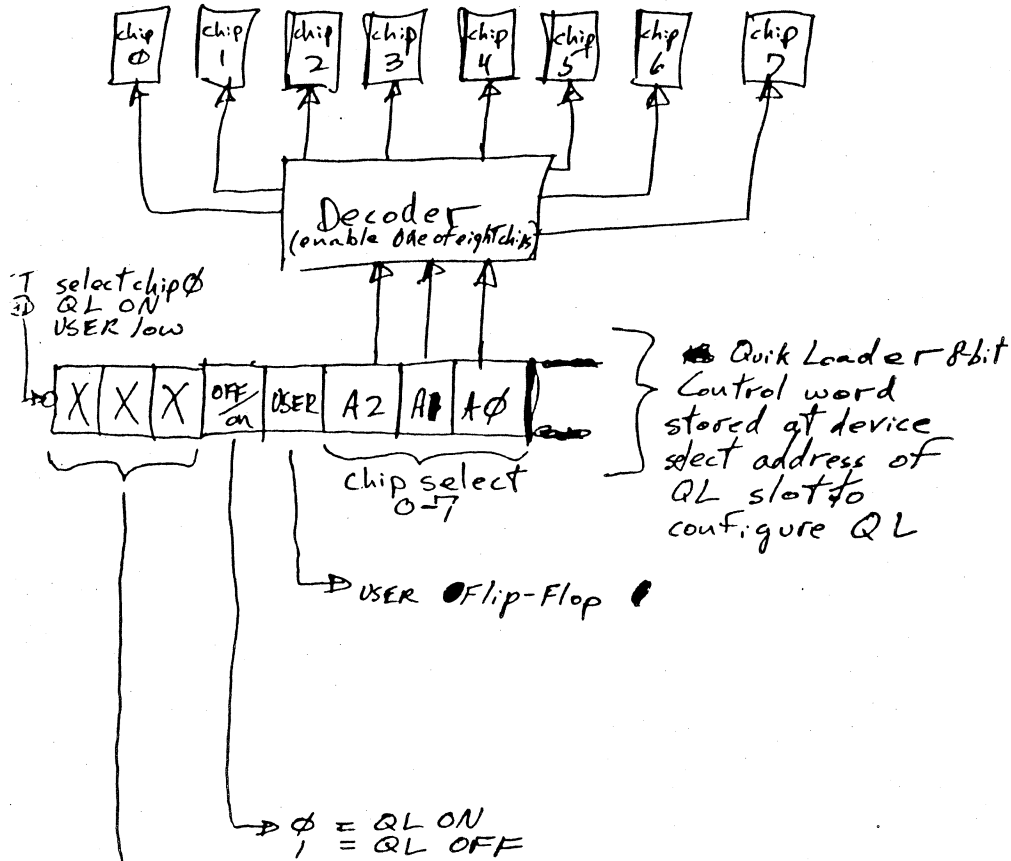 chip 0
chip 1
chip 2
chip 3
chip 4
chip 5
chip 6
chip 7
Decoder
(enable one of eight chips)
select chip Ø
QL ON
USER low
X X X OFF/on USER A2 A1 AØ
chip select
0-7
Quik Loader 8-bit
Control word
stored at device
select address of
QL slot to
configure QL
USER Flip-Flop
Ø = QL ON
1 = QL OFF